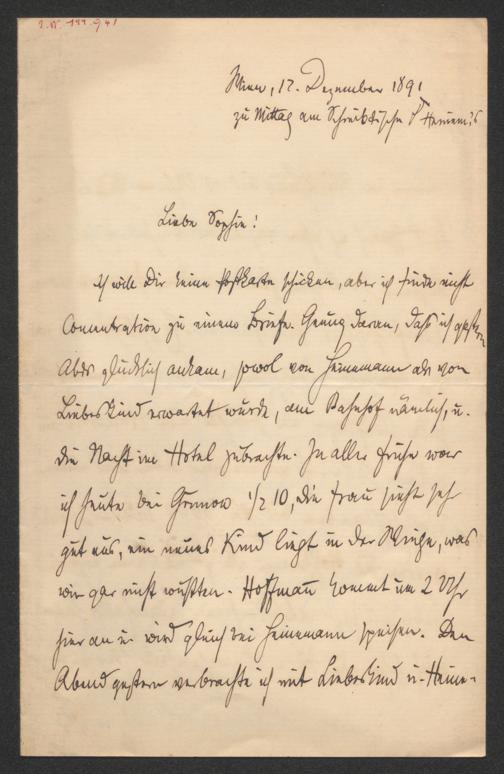 I. N. 199.941
Wien, 17. Dezember 1891
zu Mittag am Schreibtische Heinem's
Liebe Sophie!
Ich will Dir keine Postkarte schicken, aber ich finde nicht
Concentration zu einem Briefe. Genug daran, daß ich gestern
Abds glücklich ankam, sowol von Heinemann als von
Liebeskind erwartet wurde, am Bahnhof nämlich, u.
die Nacht im Hotel zubrachte. In aller Frühe war
ich heute bei Grunow 1/2 10, die Frau sieht sehr
gut aus, ein neues Kind liegt in der Wiege, was
wir gar nicht wußten. Hoffmann kommt um 2 Uhr
hier an u. wird gleich bei Heinemann speisen. Den
Abend gestern verbrachte ich mit Liebeskind u. Heine-